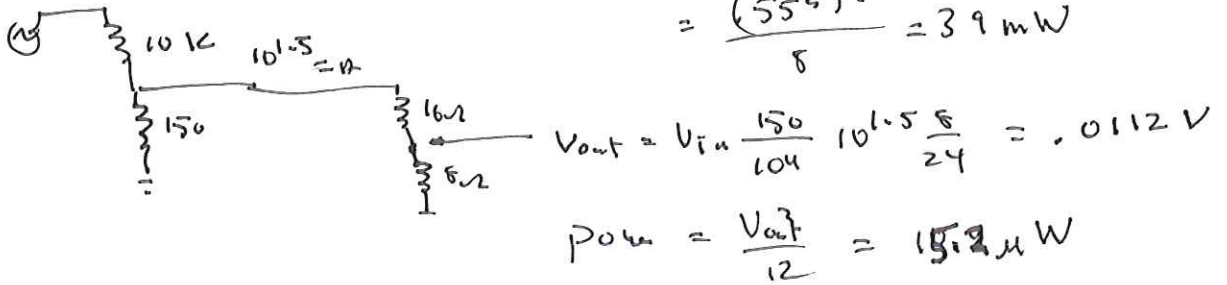 = (.555)² / 8 = 39 mW
10 K
10^1.5 = A
150
16Ω
8Ω
Vout = Vin 150/10⁴ 10^1.5 8/24 = .0112 V
Power = Vout²/12 = μW